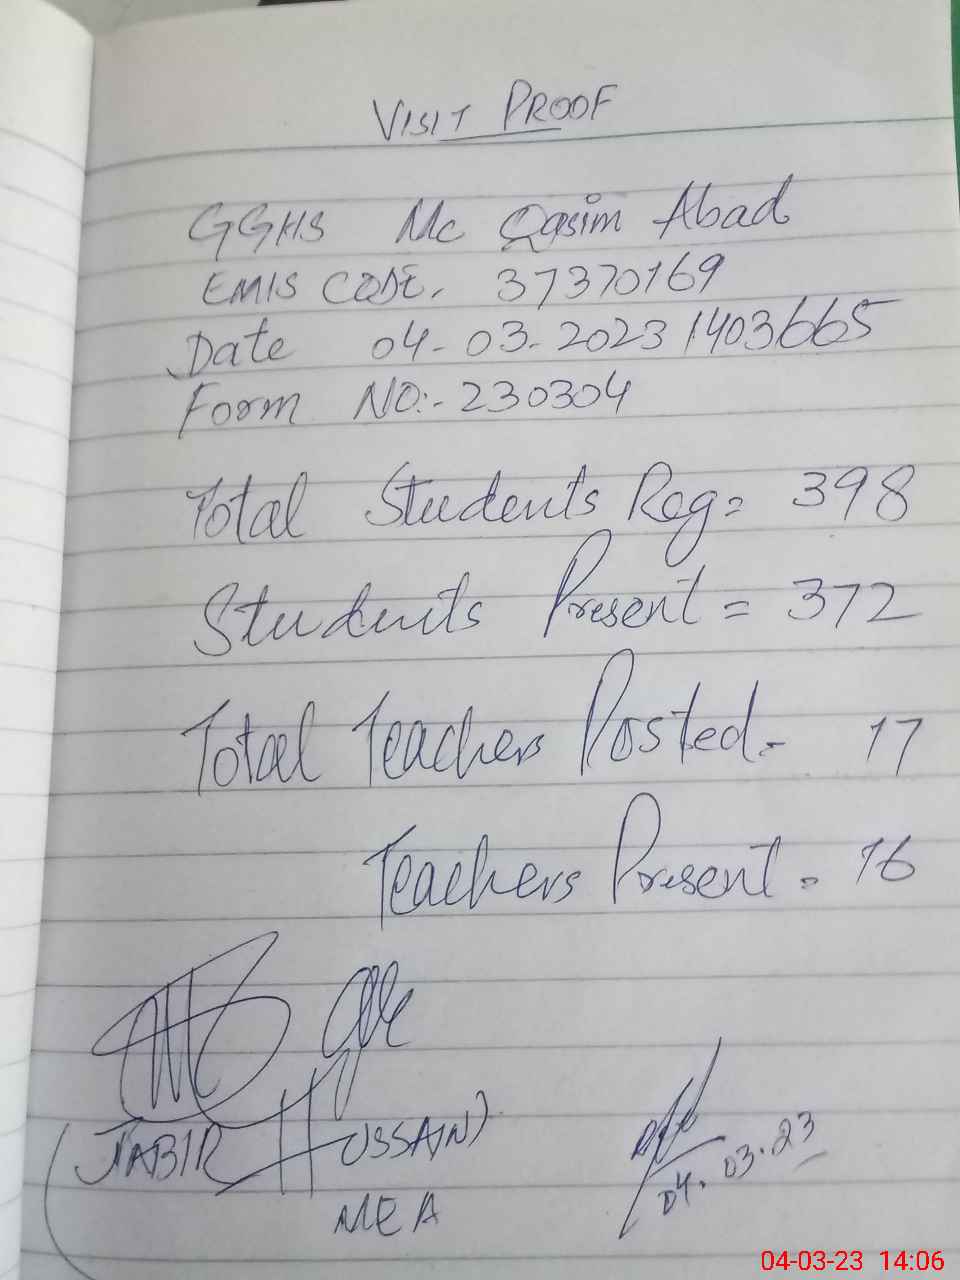 VISIT PROOF
GGHS Mc Qasim Abad
EMIS CODE. 37370169
Date 04-03-2023 1403665
Form NO:- 230304
Total Students Reg= 398
Students Present = 372
Total Teachers Posted = 17
Teachers Present = 16
(JABIR HUSSAIN)
MEA
04.03.23
04-03-23 14:06